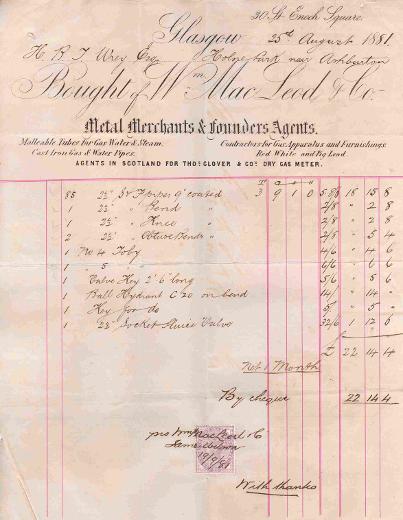 30 St. Enoch Square.
Glasgow 25th August 1881.
H. R. T. Wrey Esqe Holne Park near Ashburton
Bought of Wm. Mac Leod & Co.
Metal Merchants & Founders Agents.
Malleable Tubes for Gas Water & Steam. Contractors for Gas Apparatus and Furnishings
Cast Iron Gas & Water Pipes. Red White and Pig Lead.
AGENTS IN SCOTLAND FOR THOS. GLOVER & COS. DRY GAS METER.
85 2½" 9' coated 3 9 1 0 18 15 8
1 2½" " Bend " 2/8 " 2 8
1 2½" " Knee " 2/8 " 2 8
2 2½" " Bends " 2/8 " 5 4
1 No 4 Toby 4/6 " 4 6
1 " 5 " 6/6 " 6 6
1 Valve Key 2' 6" long 5/6 " 5 6
1 Ball Hydrant C 20 on bend 14/ " 14 "
1 Key for do 5/ " 5 "
1 2½" Socket Sluice Valve 32/6 1 12 6
£ 22 14 4
Net 1 Month
By cheque 22 14 4
pro Wm MacLeod & Co
19/9/81
With thanks